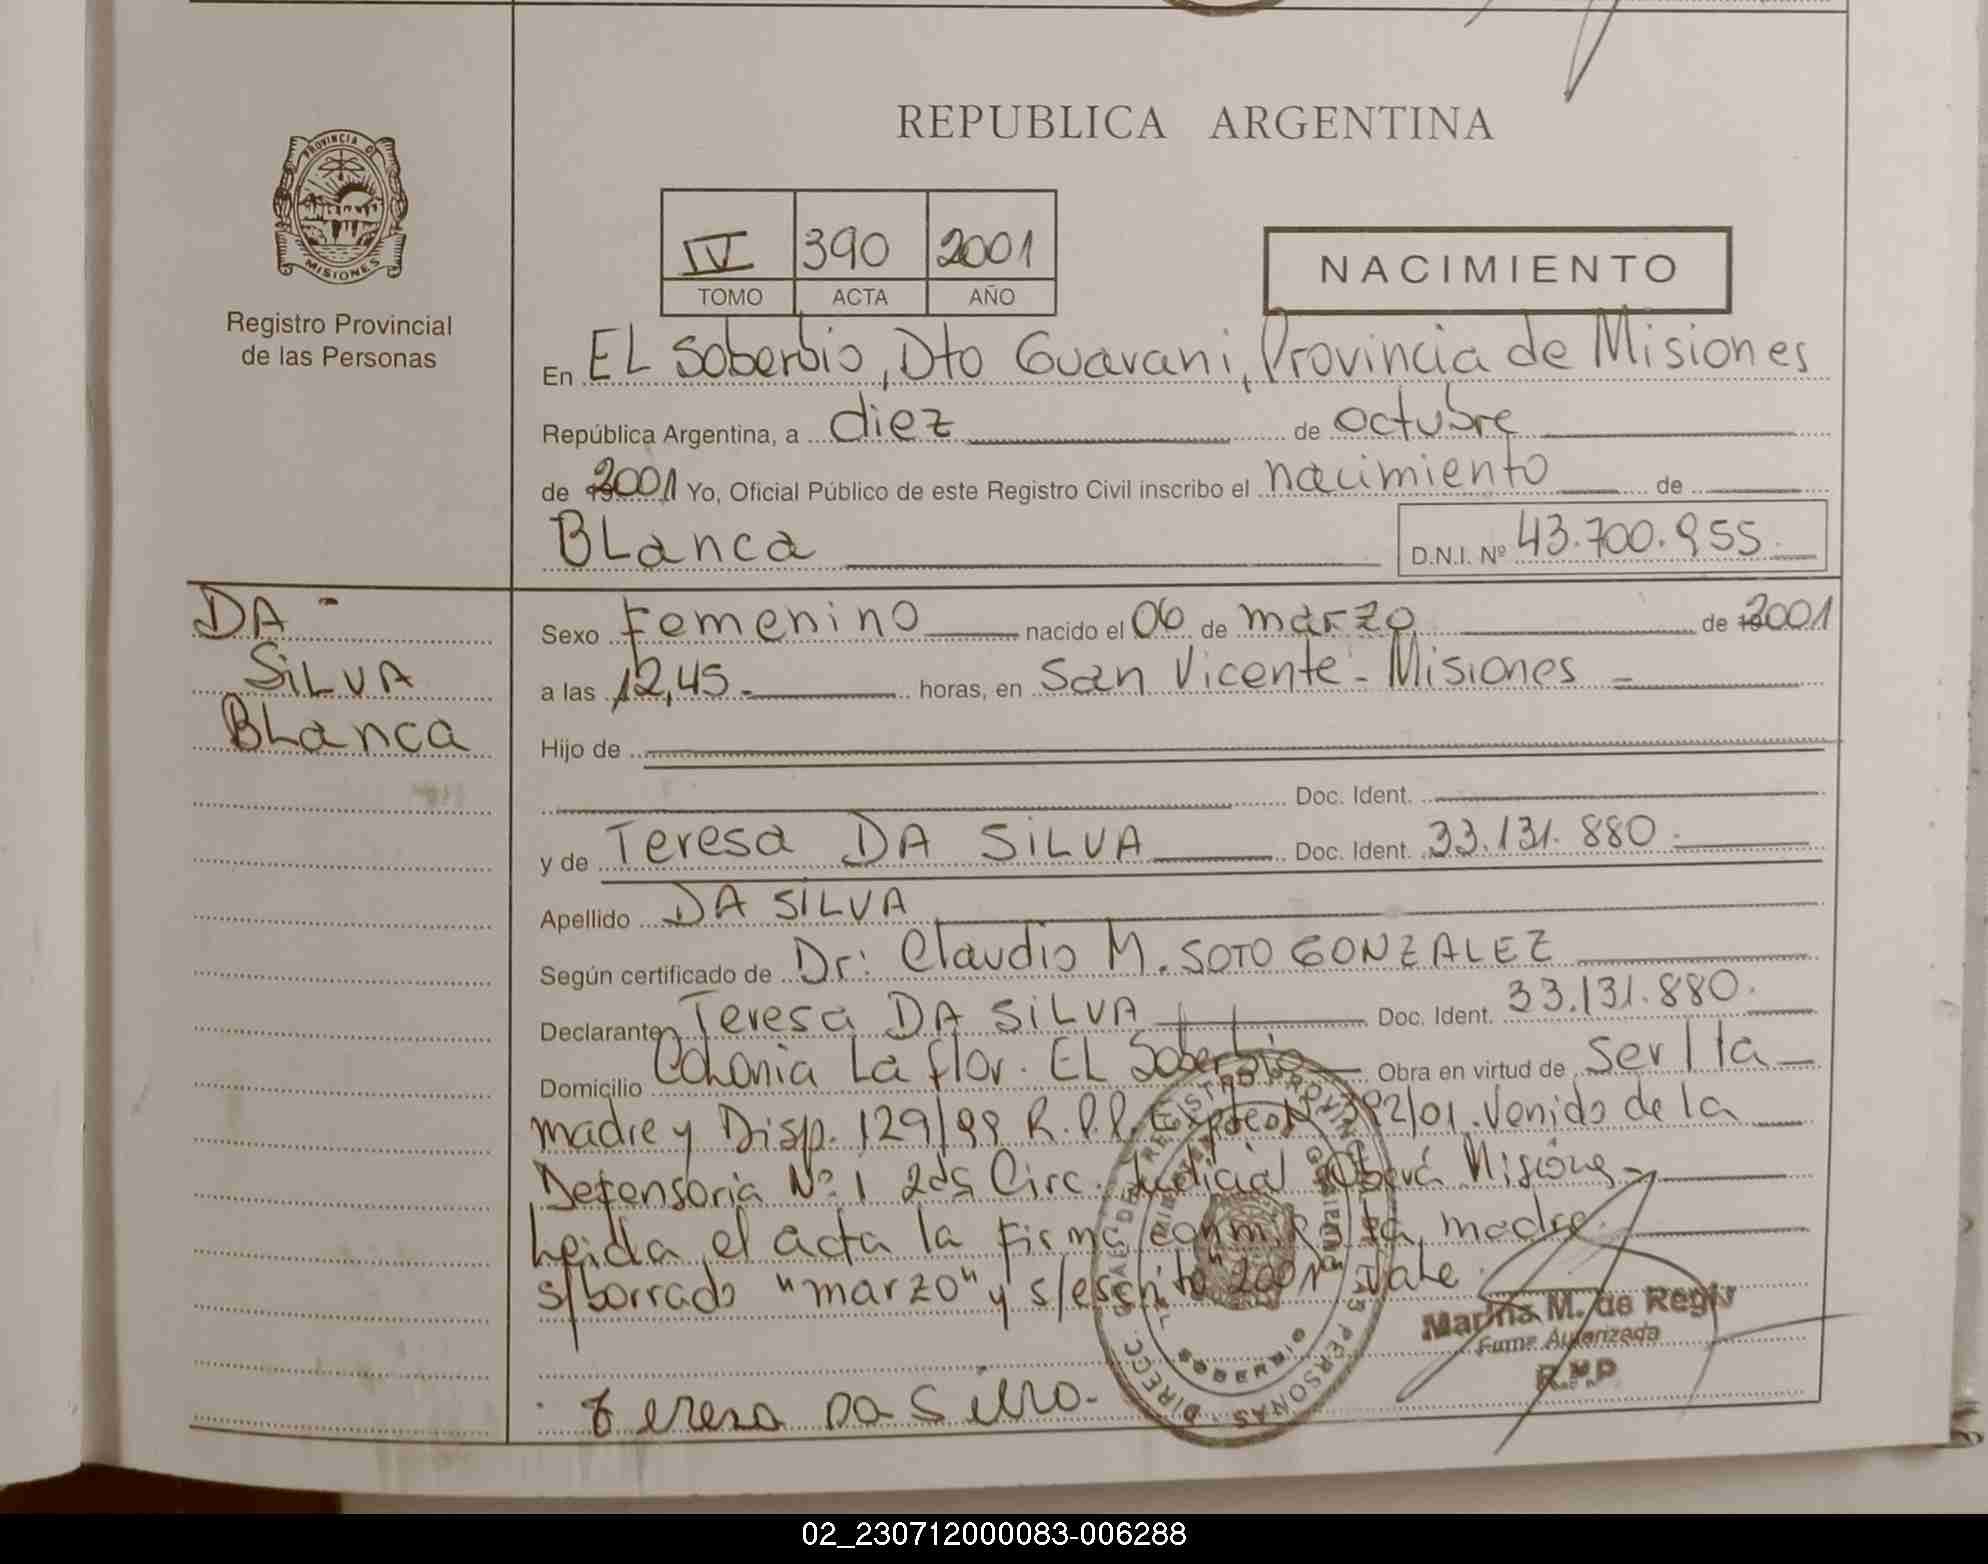 REPUBLICA ARGENTINA
PROVINCIA DE
MISIONES
Registro Provincial
de las Personas
IV 390 2001
TOMO ACTA AÑO
NACIMIENTO
En EL Soberbio, Dto Guarani, Provincia de Misiones
República Argentina, a diez de octubre
de 2001 Yo, Oficial Público de este Registro Civil inscribo el nacimiento de
BLanca D.N.I. Nº 43.700.955
DA
SiLVA
BLanca
Sexo Femenino nacido el 06 de marzo de 2001
a las 12,45 horas, en San Vicente - Misiones
Hijo de
Doc. Ident.
y de Teresa DA SiLVA Doc. Ident. 33.131.880
Apellido DA SiLVA
Según certificado de Dr: Claudio M. SOTO GONZALEZ
Declarante Teresa DA SiLVA Doc. Ident. 33.131.880
Domicilio Colonia La flor. EL Soberbio Obra en virtud de ser la
madre y Disp. 129/99 R.P.P. Expte Nº 392/01. Venido de la
Defensoria Nº 1 2da Circ. Judicial Oberá Misiones
Leida el acta la firma conmigo la madre.
s/borrado "marzo" y s/escrito "2001" Vale.
Teresa Da Silva.
Marina M. de
Firma Autorizada
R.P.P
02_230712000083-006288